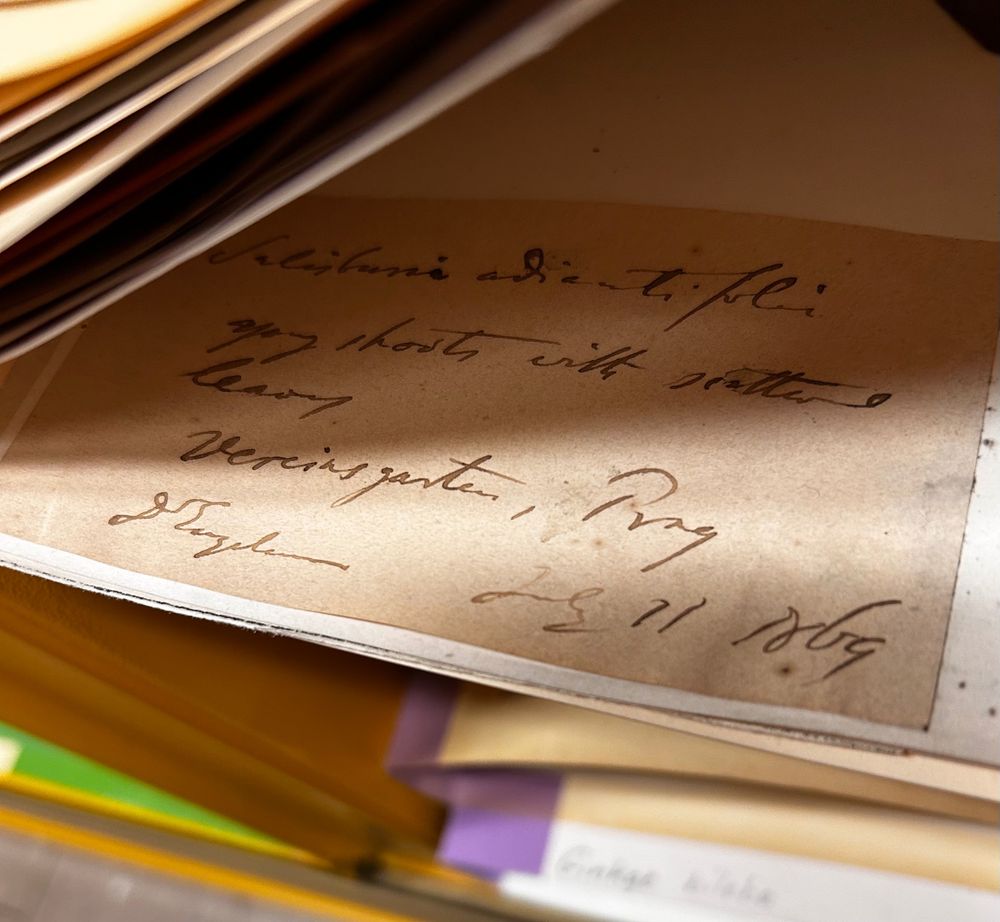 Salisburia adiantifolia
young shoots with scattered
leaves
Vereinsgarten, Prag
Dr Engelmann
July 11 1869
Ginkgo biloba